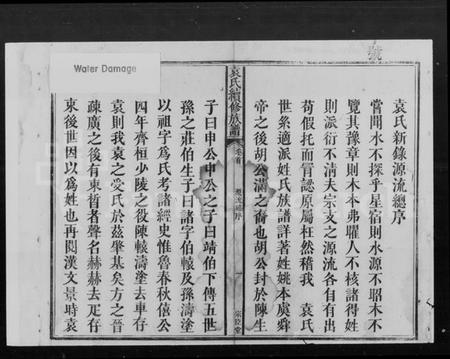 號
Water Damage
袁氏新錄源流總序
嘗聞水不探乎星宿則水源不昭木不
覽其豫章則木本弗曜人不核諸得姓
則派衍不清夫宗支之源流各自有出
苟假托而冒認原屬枉然稽我 袁氏
世系適派姓氏族譜詳著姓姚本虞舜
帝之後胡公滿之裔也胡公封於陳生
袁氏續修族譜
卷首
源流總序
子曰申公申公之子曰靖伯下傳五世
孫之莊伯生子曰諸字伯轅及孫濤塗
以祖字為氏考諸經史惟魯春秋僖公
四年齊桓少陵之役陳轅濤塗去車存
袁則我袁之受氏於茲肇基矣方之晉
疎廣之後有束晳者聲名赫赫去疋存
束後世因以為姓也再閱漢文景時袁